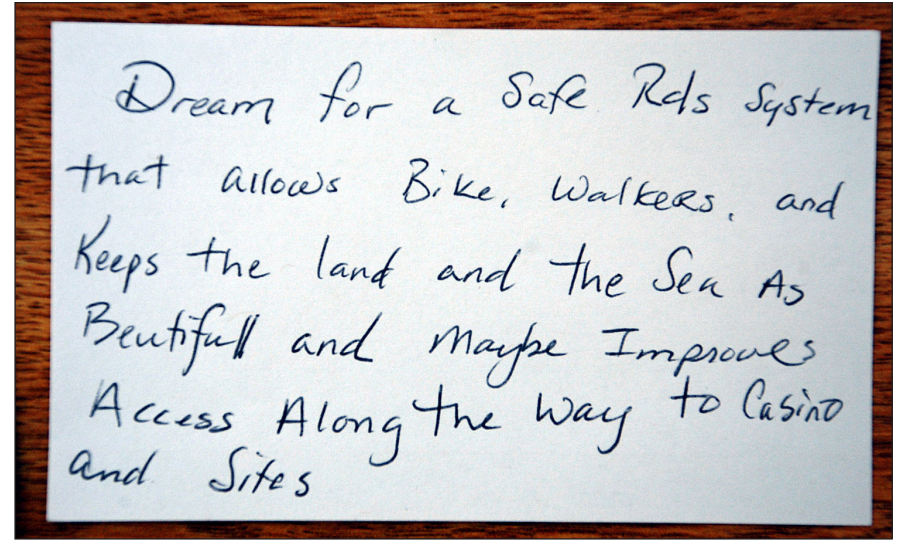 Dream for a Safe Rds System
that allows Bike, Walkers, and
Keeps the land and the Sea As
Beutifull and Maybe Improves
Access Along the Way to Casino
and Sites